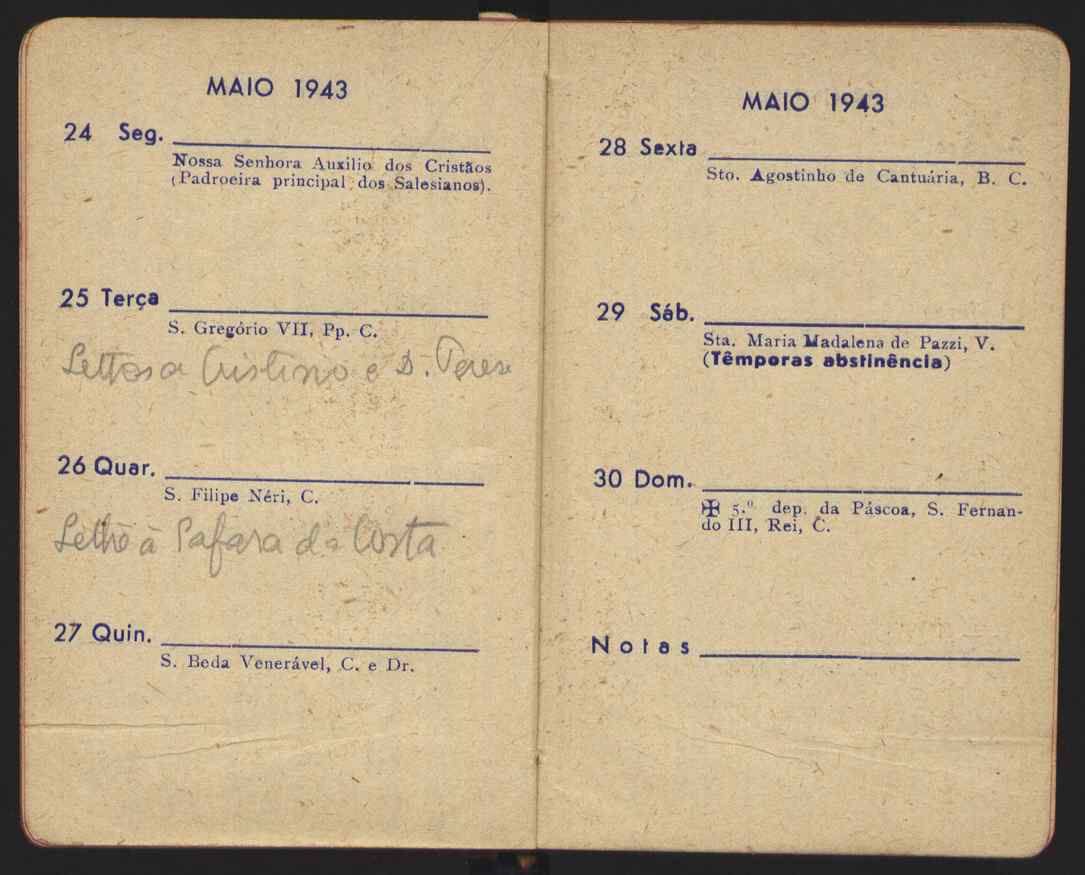 MAIO 1943
24 Seg.
Nossa Senhora Auxilio dos Cristãos
(Padroeira principal dos Salesianos).
25 Terça
S. Gregório VII, Pp. C.
a Cristino e D.
26 Quar.
S. Filipe Néri, C.
à Safara da Costa
27 Quin.
S. Beda Venerável, C. e Dr.
MAIO 1943
28 Sexta
Sto. Agostinho de Cantuária, B. C.
29 Sáb.
Sta. Maria Madalena de Pazzi, V.
(Têmporas abstinência)
30 Dom.
✠ 5.º dep. da Páscoa, S. Fernan-
do III, Rei, C.
Notas